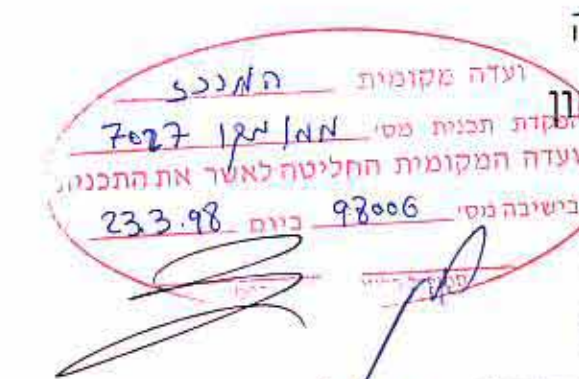 ועדה מקומית המרכז
הפקדת תכנית מס' ממ/מק/ 7027
הועדה המקומית החליטה לאשר את התכנית
בישיבה מס' 98006 ביום 23.3.98